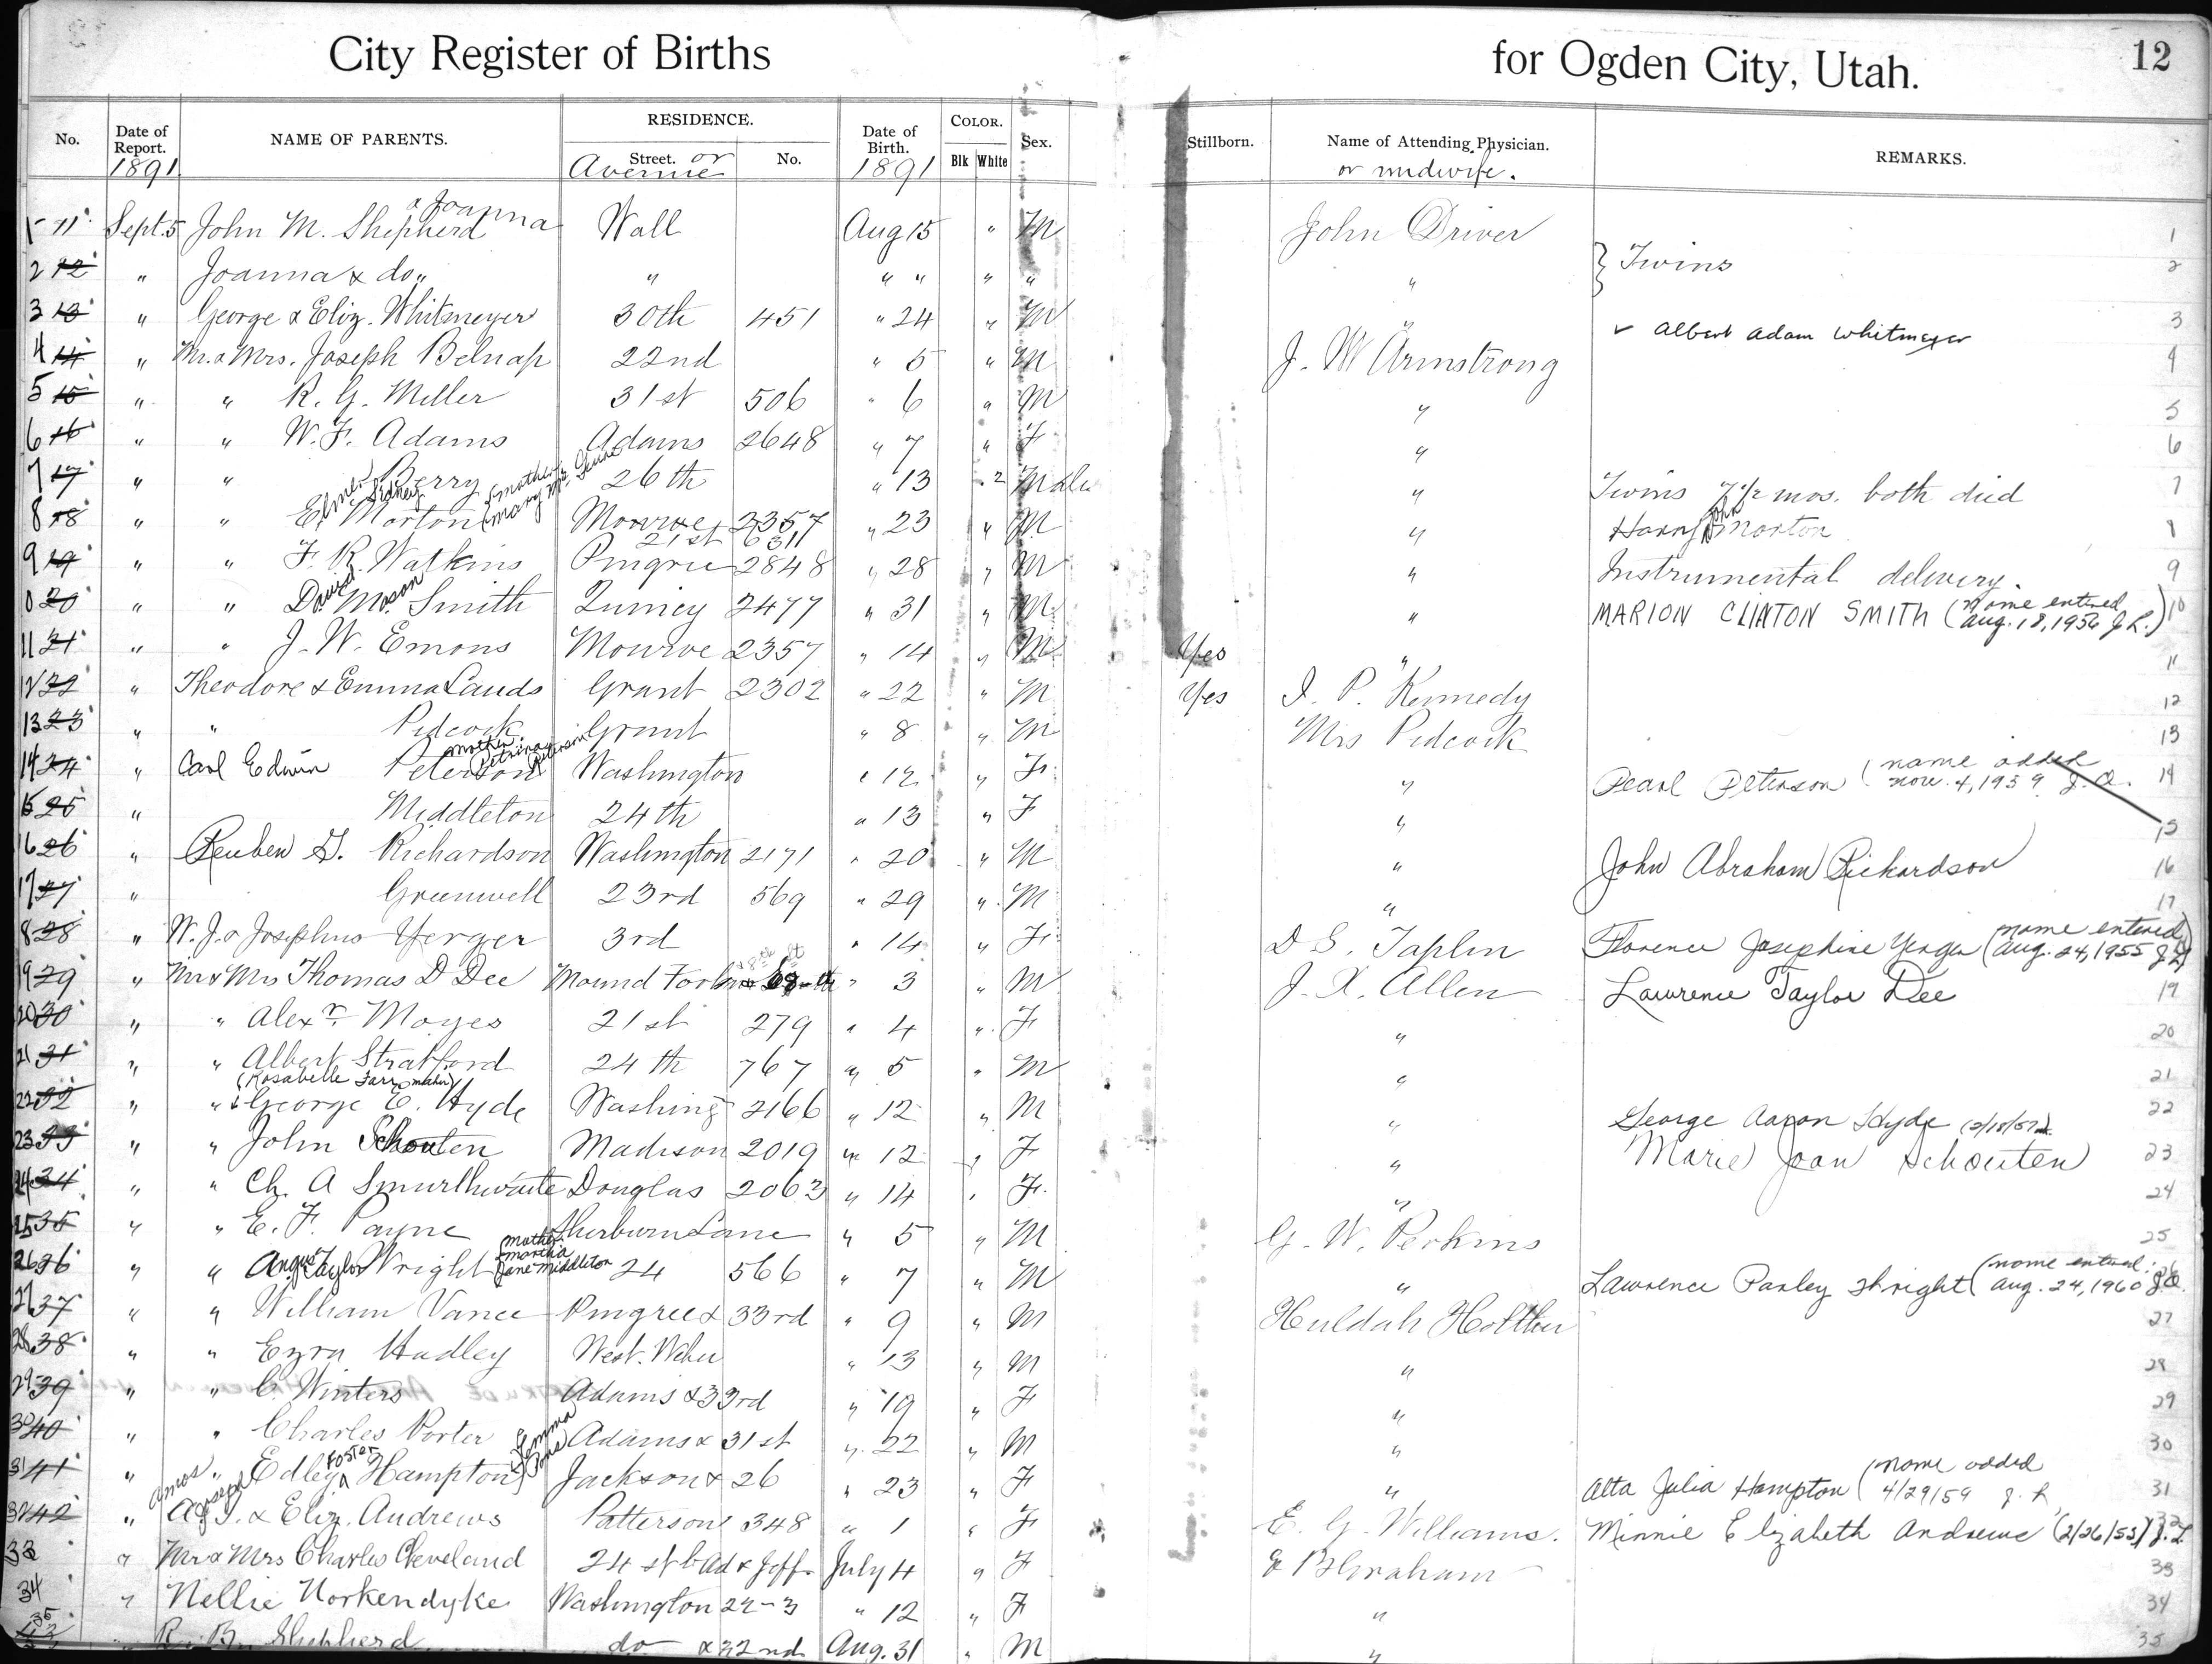 City Register of Births for Ogden City, Utah. 12
No. Date of Report. NAME OF PARENTS. RESIDENCE. Street. No. Date of Birth. COLOR. Blk White Sex. Stillborn. Name of Attending Physician. REMARKS.
1891 Avenue or 1891 or midwife.
1 11 Sept. 5 John M. Shepherd & Joanna Wall Aug 15 " M John Driver 1
2 12 " Joanna & do " " " " " " " } Twins 2
3 13 " George & Eliz. Whitmeyer 30th 451 " 24 " M " ✓ Albert Adam Whitmeyer 3
4 14 " Mr. & Mrs. Joseph Belnap 22nd " 5 " M J. W. Armstrong 4
5 15 " " R. G. Miller 31st 506 " 6 " M " 5
6 16 " " W. F. Adams Adams 2648 " 7 " F " 6
7 17 " " Berry 26th " 13 " 2 Male " Twins 7 1/2 mos. both died 7
8 18 " " Elmer Sidney Morton (mother Mary Mc Monroe 2357 " 23 " M " Harry John Morton 8
21st 6311
9 19 " " F. R. Watkins Pingree 2848 " 28 " M " Instrumental delivery. 9
0 20 " " David Mason Smith Quincy 2477 " 31 " M " MARION CLINTON SMITH (Name entered Aug. 18, 1956 J.L.) 10
11 21 " " J. W. Emons Monroe 2357 " 14 " M Yes " 11
12 22 " Theodore & Emma Lauds Grant 2302 " 22 " M Yes J. P. Kennedy 12
13 23 " " Pidcock Grant " 8 " M Mrs Pidcock 13
14 24 " Carl Edwin Peterson mother Petrina Peterson Washington " 12 " F " Pearl Peterson (name added Nov. 4, 1959 J.A. 14
15 25 " Middleton 24th " 13 " F " 15
16 26 " Reuben G. Richardson Washington 2171 " 20 " M " John Abraham Richardson 16
17 27 " Greenwell 23rd 569 " 29 " M " 17
8 28 " W. J. & Josephine Yerger 3rd " 14 " F D S. Taplin Florence Josephine Yerger (name entered Aug. 24, 1955 J.L.)
19 29 " Mr & Mrs Thomas D Dee Mound Fork " 3 " M J. X. Allen Lawrence Taylor Dee 19
20 30 " " Alexr. Moyes 21st 279 " 4 " F " 20
21 31 " " Albert Stratford 24th 767 " 5 " M " 21
(Rosabelle Farr mother)
22 32 " " George E. Hyde Washing 2166 " 12 " M " George Aaron Hyde 22
23 33 " " John Schouten Madison 2019 " 12 " F " Marie Joan Schouten 23
24 34 " " Ch. A Smurthwaite Douglas 2063 " 14 " F " 24
25 35 " " E. F. Payne Sherburn Lane " 5 " M G. W. Perkins 25
26 36 " " Angus Taylor Wright (Mother Martha Jane Middleton 24 566 " 7 " M " Lawrence Parley Wright (name entered Aug. 24, 1960 J.A. 26
27 37 " " William Vance Pingree & 33rd " 9 " M Huldah Holther 27
28 38 " " Ezra Hadley West. Weber " 13 " M " 28
29 39 " " C. Winters Adams & 33rd " 19 " F " 29
30 40 " " Charles Porter Adams & 31st " 22 " M " 30
31 41 " " Edley Foster Hampton Jackson & 26 " 23 " F " Alta Julia Hampton (Name added 4/29/59 J.L. 31
32 42 " Amos Joseph A. J. & Eliz. Andrews Patterson 348 " 1 " F E. G. Williams. Minnie Elizabeth Andrews (2/26/53) J.L. 32
33 " Mr & Mrs Charles Cleveland 24 st b Ad & Jeff July 4 " F & B Graham 33
34 " Nellie Norkendyke Washington 22-3 " 12 " F " 34
35 43 " R. B. Shepherd do & 32nd Aug. 31 " M " 35